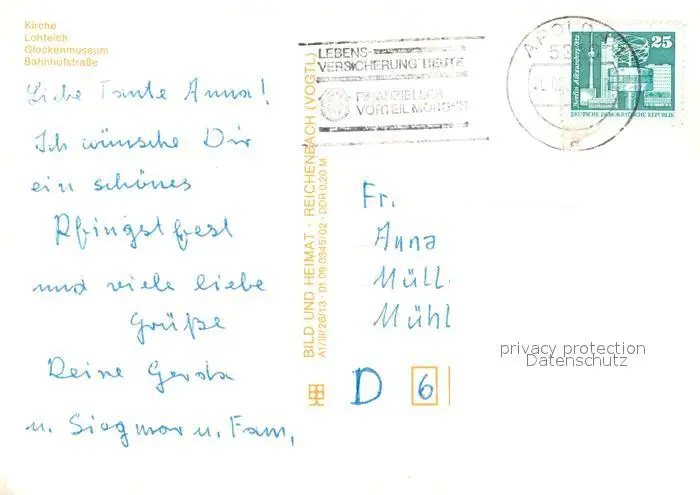 Kirche
Lohteich
Glockenmuseum
Bahnhofstraße
Liebe Tante Anna!
Ich wünsche Dir
ein schönes
Pfingstfest
und viele liebe
Grüße
Deine Gerda
u. Siegmar u. Fam.
BILD UND HEIMAT · REICHENBACH (VOGTL)
A1/III/26/13 · 01 09 0345/02 · DDR 0,20 M
LEBENS-
VERSICHERUNG HEUTE
FINANZIELLER
VORTEIL MORGEN
APOLDA
53
25
Berlin, Alexanderplatz
DEUTSCHE DEMOKRATISCHE REPUBLIK
Fr.
Anna
Müll.
Mühl
D 6
privacy protection
Datenschutz